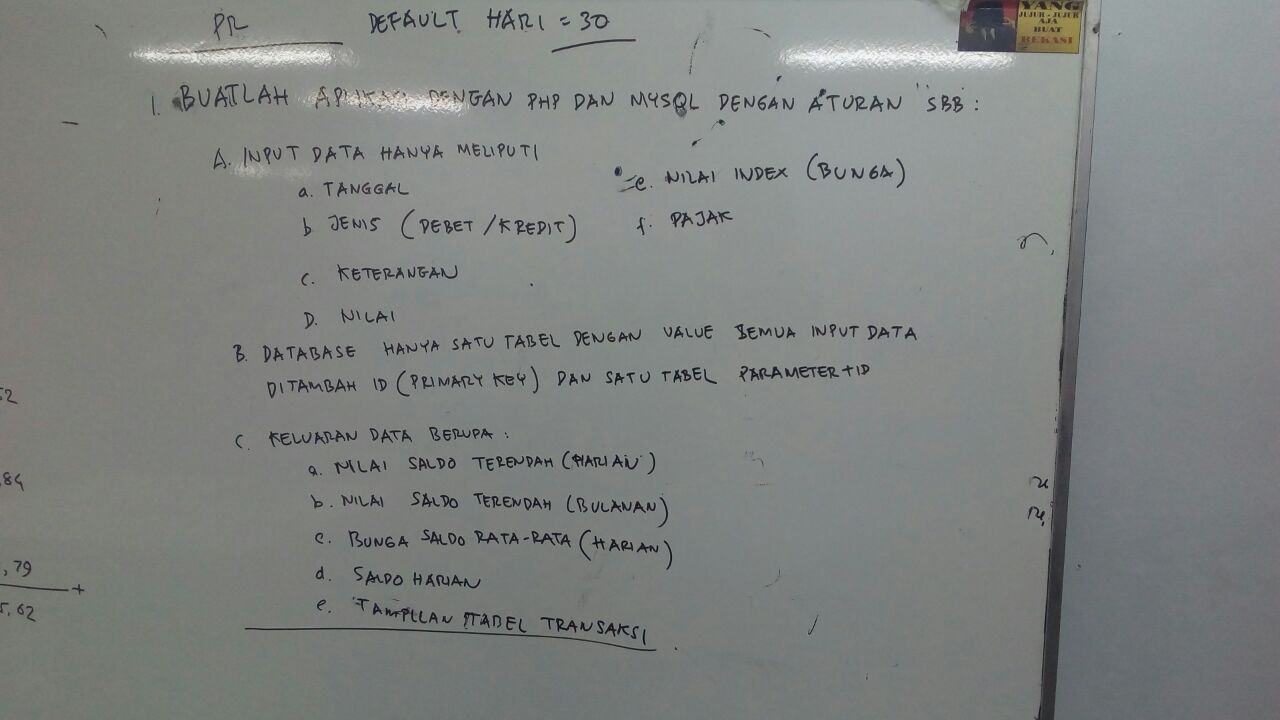 PR DEFAULT HARI = 30
1. BUATLAH APLIKASI DENGAN PHP DAN MYSQL DENGAN ATURAN "SBB :
A. INPUT DATA HANYA MELIPUTI
a. TANGGAL
b JENIS (DEBET / KREDIT)
c. KETERANGAN
D. NILAI
e. NILAI INDEX (BUNGA)
f. PAJAK
B. DATABASE HANYA SATU TABEL DENGAN VALUE SEMUA INPUT DATA
DITAMBAH ID (PRIMARY KEY) DAN SATU TABEL PARAMETER + ID
C KELUARAN DATA BERUPA :
a. NILAI SALDO TERENDAH (HARIAN)
b. NILAI SALDO TERENDAH (BULANAN)
c. BUNGA SALDO RATA-RATA (HARIAN)
d. SALDO HARIAN
e. TAMPILAN TABEL TRANSAKSI
YANG
JUJUR - JUJUR
AJA
BUAT
BEKASI
52
,84
, 79
+
5,62